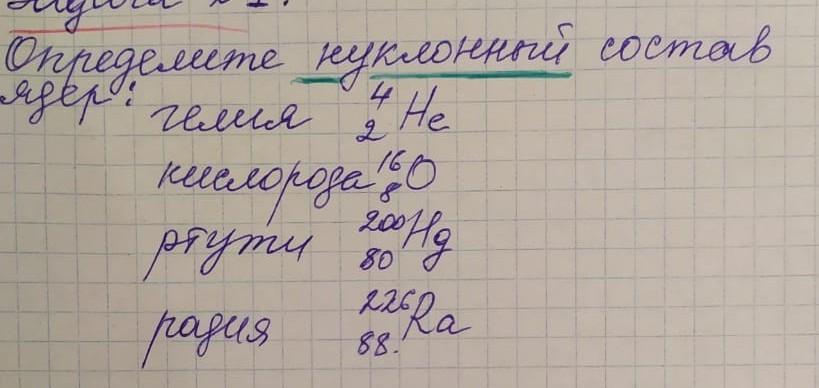 Определите нуклонный состав
ядер:
гелия ⁴₂He
кислорода ¹⁶₈O
ртути ²⁰⁰₈₀Hg
радия ²²⁶₈₈.Ra